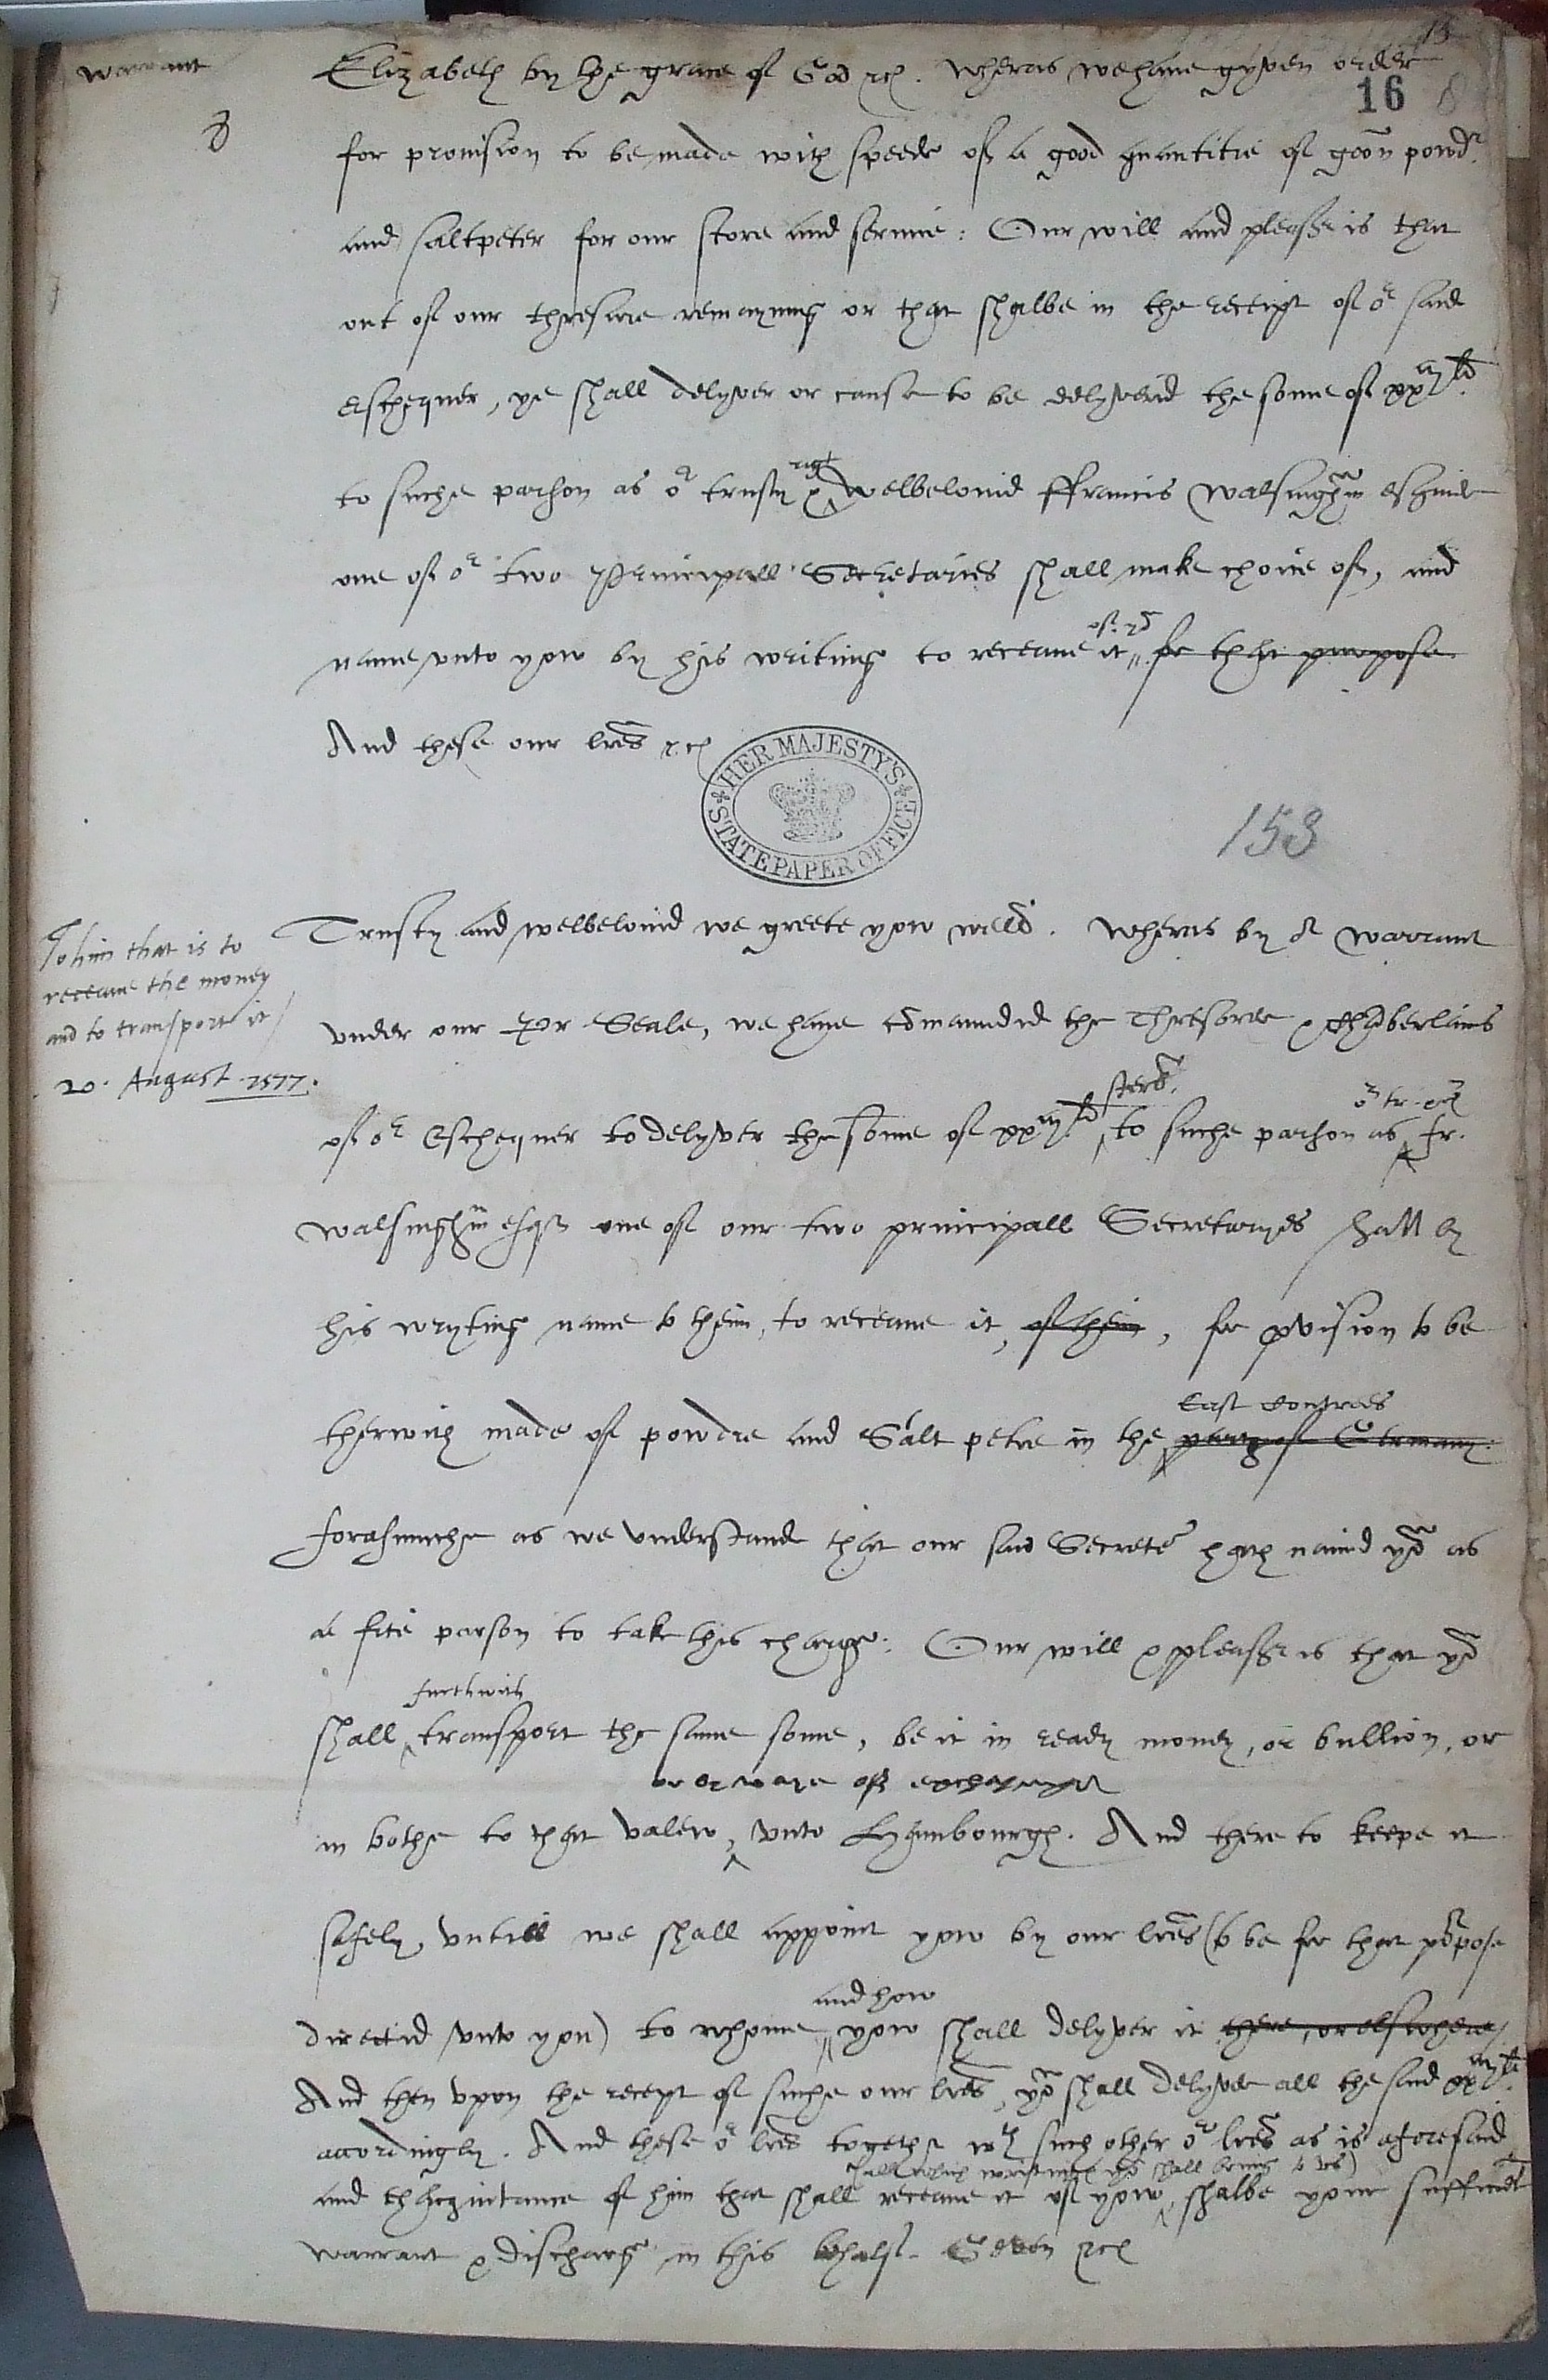 warrant
Elizabeth by the grace of God &c. Wheras we haue gyven order
15
16 8
for prouision to be made with speede of a good quantitie of goon powdr
and saltpeter for our store and seruice: Our will and pleasr is that
out of our thresure remayning or that shalbe in the receipt of or said
Eschequer, ye shall delyver or cause to be delyverid the some of xxm li.
to suche parson as or trusty & welbelouid ffrancis Walsingham esquier
one of or two Principall Secretaries shall make choice of, and
of yo
name vnto yow by his writing to receaue it for that purpose.
And these our lres &c
HER MAJESTY'S STATE PAPER OFFICE
153
To him that is to
receaue the money
and to transport it
20. August 1577.
Trusty and welbelouid we greete yow well. Wheras by or warrant
vnder our Seale, we haue comaundid the Thresorer & Chaberlains
sterl.
of or Eschequer to delyver the some of xxm li to suche parson as fr.
Walsingham esqr one of our two principall Secretaryes shall by
his wryting name to theim, to receaue it, of theim, for pvision to be
East Contrees
therwith made of powdre and Salt petre in the partes of Germany.
forasmuche as we vnderstande that our said Secrete hath namid yo as
a fitte parson to take this charge: Our will & pleasr is that yo
furthwith
shall transport the same some, be it in ready money, or bullion, or
or by waye of exchaunge
in bothe to that valew, vnto Hambourgh. And there to keepe it
safely, vntill we shall appoint yow by our lres (to be for that purpose
and how
directid vnto you) to whome yow shall delyver it there, or elswhere
And then vpon the receipt of suche our lres, yo shall delyver all the said xxm li.
accordingly. And these or lres together wth such other or lres as is aforesaid
(all which writings yo shall bring to vs)
and thacquintance of him that shall receaue it of yow, shalbe your sufficient
warrant & discharge in this behalf. Geven &c